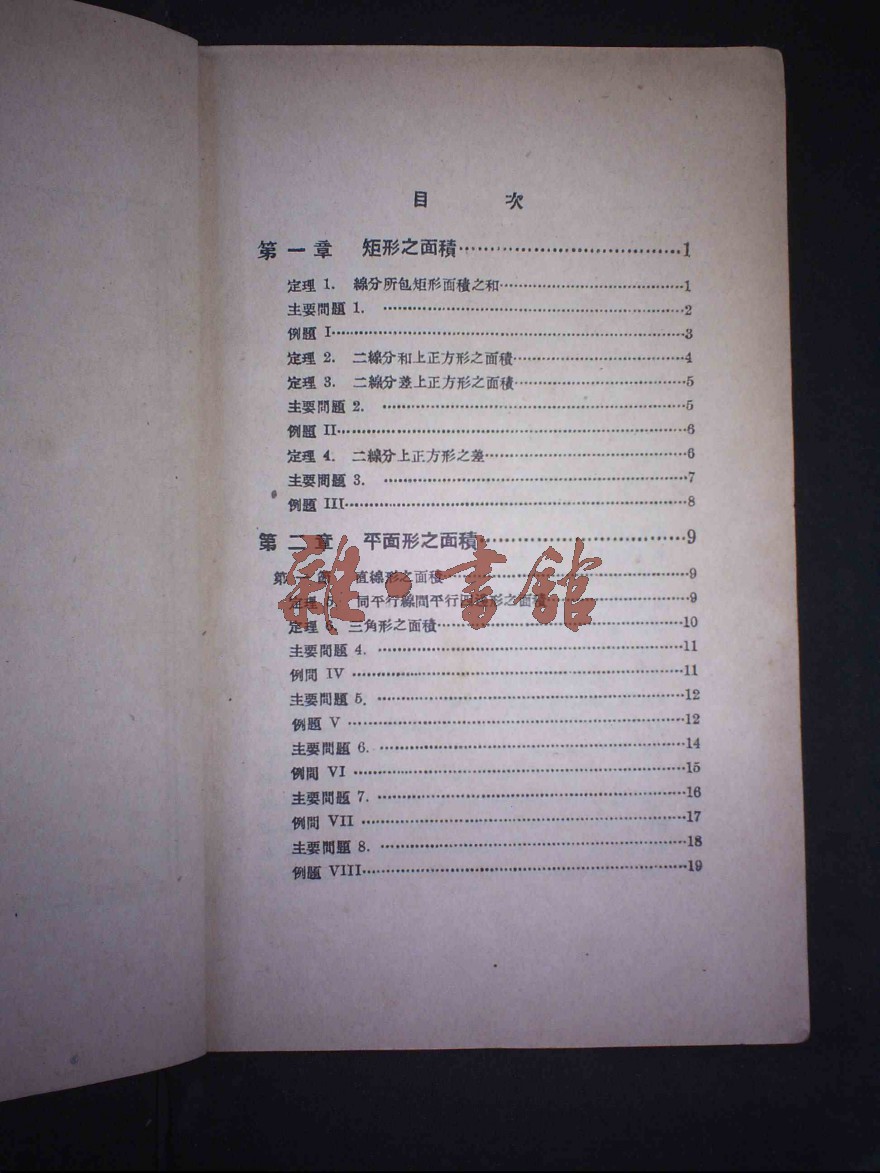 目 次
第一章 矩形之面積…………1
定理 1. 線分所包矩形面積之和…………1
主要問題 1. …………2
例題 I…………3
定理 2. 二線分和上正方形之面積…………4
定理 3. 二線分差上正方形之面積…………5
主要問題 2. …………5
例題 II…………6
定理 4. 二線分上正方形之差…………6
主要問題 3. …………7
例題 III…………8
第二章 平面形之面積…………9
第一節 直線形之面積…………9
定理 5. 同平行線間平行四邊形之面積…………9
定理 6. 三角形之面積…………10
主要問題 4. …………11
例問 IV …………11
主要問題 5. …………12
例題 V …………12
主要問題 6. …………14
例問 VI …………15
主要問題 7. …………16
例問 VII …………17
主要問題 8. …………18
例題 VIII…………19
雜·書館